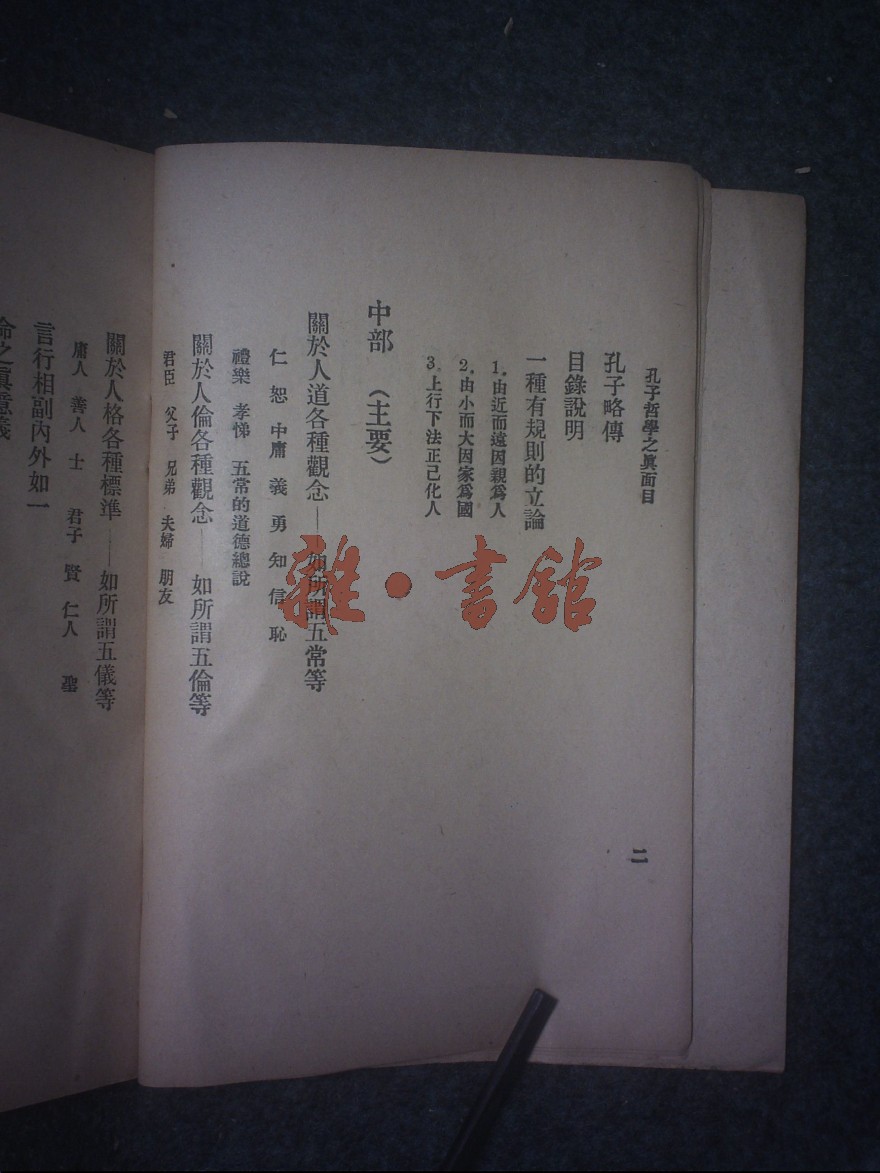 孔子哲學之眞面目
二
孔子略傳
目錄說明
一種有規則的立論
1.由近而遠因親爲人
2.由小而大因家爲國
3.上行下法正己化人
中部 (主要)
關於人道各種觀念——如所謂五常等
仁 恕 中庸 義 勇 知 信 恥
禮樂 孝悌 五常的道德總說
關於人倫各種觀念——如所謂五倫等
君臣 父子 兄弟 夫婦 朋友
關於人格各種標準——如所謂五儀等
庸人 善人 士 君子 賢 仁人 聖
言行相副內外如一
命之眞意義
雜·書館